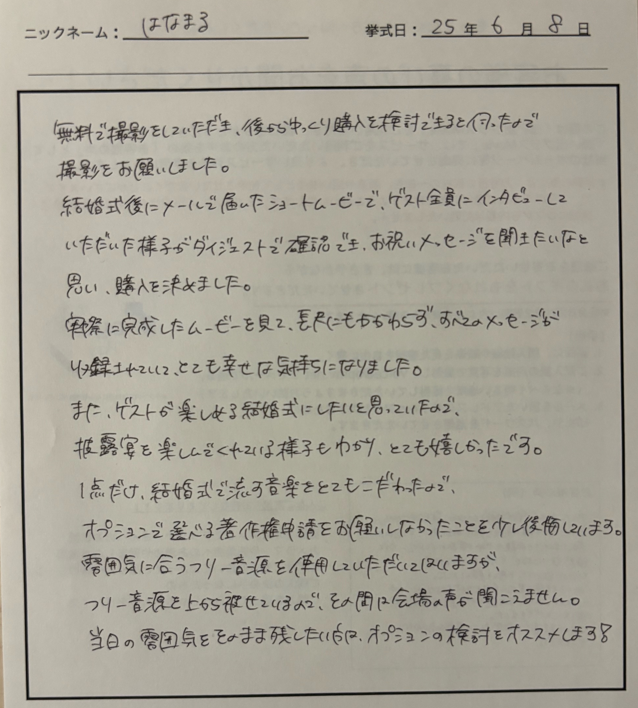 ニックネーム: はなまる 挙式日: 25 年 6 月 8 日
無料で撮影をしていただき、後からゆっくり購入を検討できると伺ったので
撮影をお願いしました。
結婚式後にメールで届いたショートムービーで、ゲスト全員にインタビューして
いただいた様子がダイジェストで確認でき、お祝いメッセージを聞きたいなと
思い、購入を決めました。
実際に完成したムービーを見て、長尺にもかかわらず、すべてのメッセージが
収録されていて、とても幸せな気持ちになりました。
また、ゲストが楽しめる結婚式にしたいと思っていたので、
披露宴を楽しんでくれている様子もわかり、とても嬉しかったです。
1点だけ、結婚式で流す音楽をとてもこだわったので、
オプションで選べる著作権申請をお願いしなかったことを少し後悔しています。
雰囲気に合うフリー音源を使用していただいてはいますが、
フリー音源を上から被せているので、その間は会場の声が聞こえません。
当日の雰囲気をそのまま残したい方は、オプションの検討をオススメします